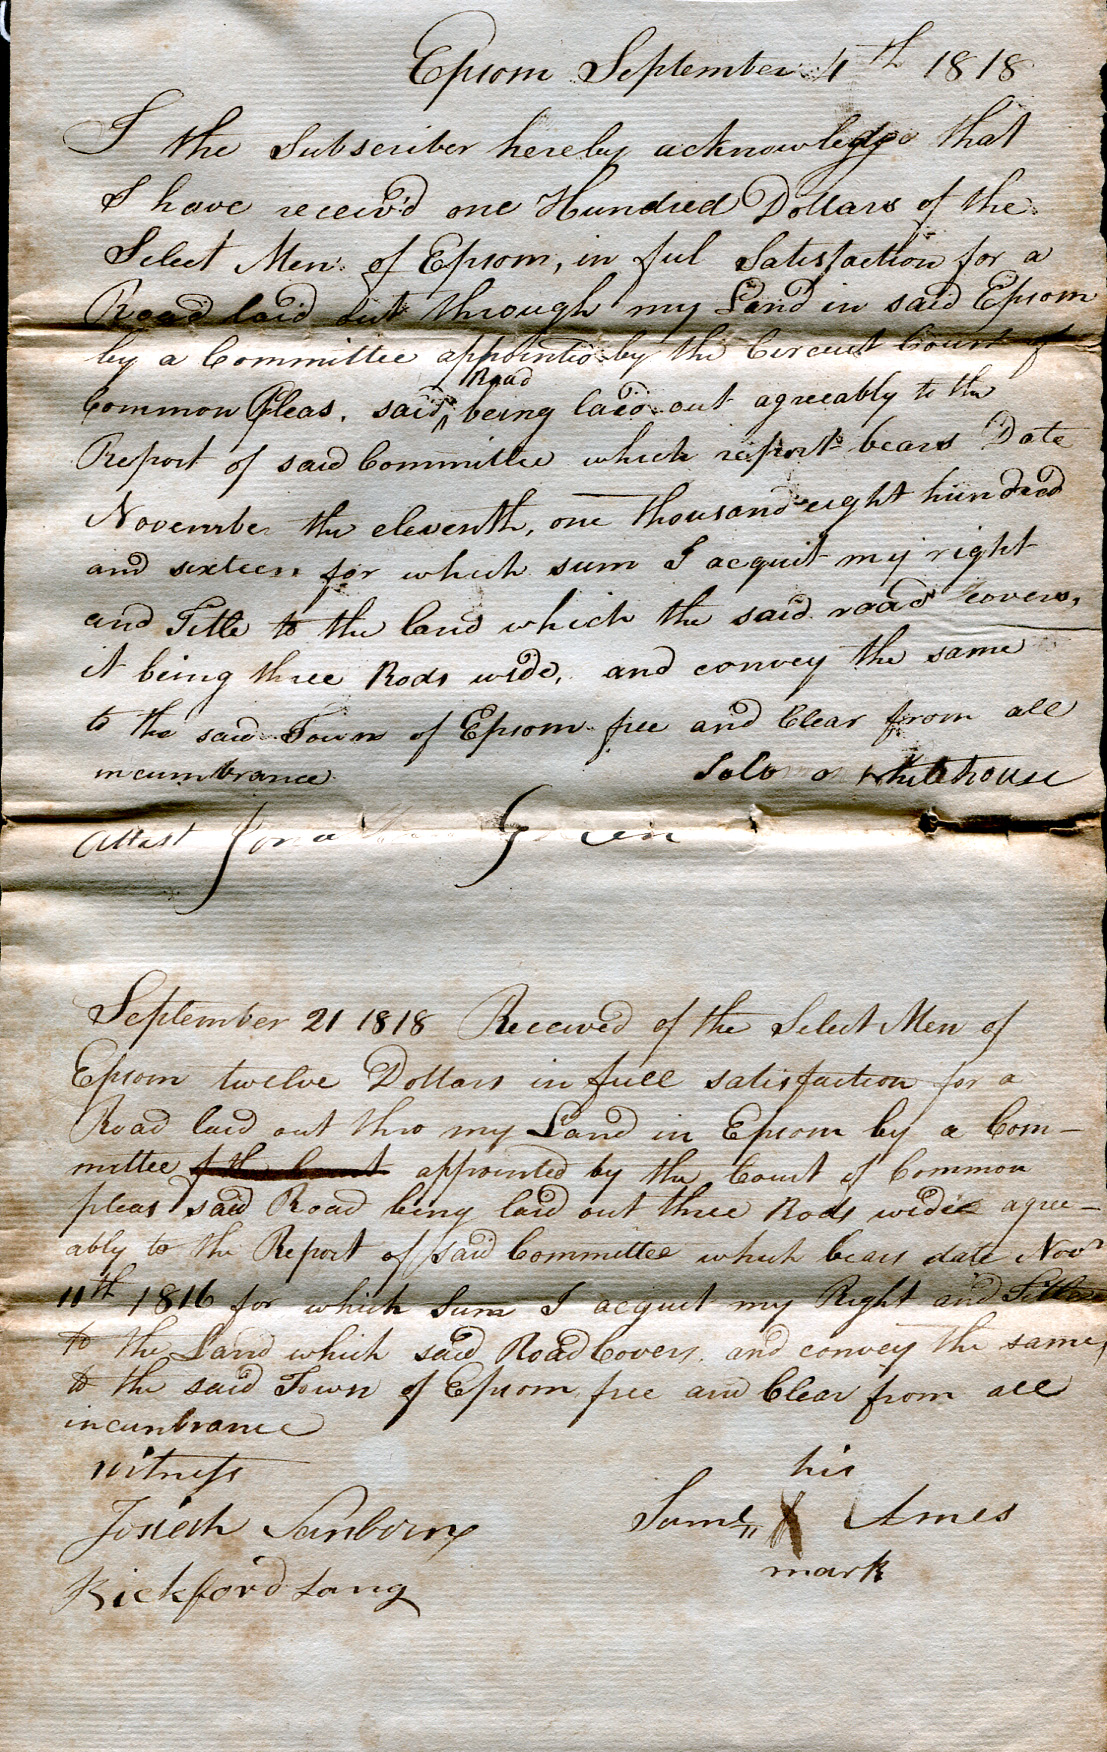 Epsom September 4th 1818
I the Subscriber hereby acknowledge that
I have receiv'd one Hundred Dollars of the
Select Men of Epsom, in ful Satisfaction for a
Road laid out through my Land in said Epsom
by a Committee appointed by the Circuit Court of
Common Pleas, said ^ Road being laid out agreeably to the
Report of said Committee which report bears Date
November the eleventh, one thousand eight hundred
and sixteen for which sum I acquit my right
and Title to the land which the said road covers,
it being three Rods wide, and convey the same
to the said Town of Epsom free and Clear from all
incumbrance Solo on Whitehouse
Attest Jona Green
September 21 1818 Received of the Select Men of
Epsom twelve Dollars in full satisfaction for a
Road laid out thro my Land in Epsom by a Com-
mittee of the Court appointed by the Court of Common
pleas said Road being laid out three Rods wide agree-
ably to the Report of said Committee which bears date Novr
11th 1816 for which Sum I acquit my Right and Title
to the Land which said Road Covers, and convey the same,
to the said Town of Epsom free and Clear from all
incunbrance
witness his
Josiah Sanborn Saml X Ames
Bickford Lang mark